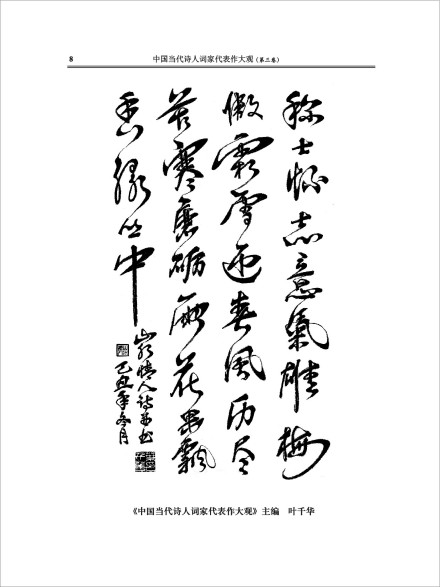 8
中国当代诗人词家代表作大观（第三卷）
称士怀志意气雄梅
傲霜雪迎春风历尽
苦寒磨砺 花果飘
香绿丛中
情人诗并书
丑年冬月
《中国当代诗人词家代表作大观》主编 叶千华